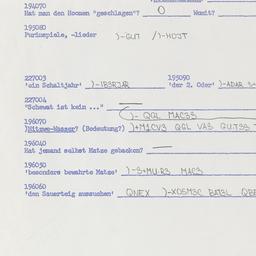 194070
Hat man den Hooman "geschlagen"? O Womit?
195080
Purimspiele, -lieder )-GUT /)-HOJT
227003 195090
'ein Schaltjahr' )-IB3RJAR 'der 2. Oder' )-ADAR
227004
"Schewat ist kein ..." —
)- QGL MAC33
196070
)Mitzwe-Wasser? (Bedeutung?) )+M1CV3 QGL VA3 GUT33
196040
Hat jemand selbst Matze gebacken? —
196050
'besonders bewahrte Matze' )-3+MU.R3 MAC3
196060
'den Sauerteig aussuchen' QNEX )-XO5M3C BAT3L